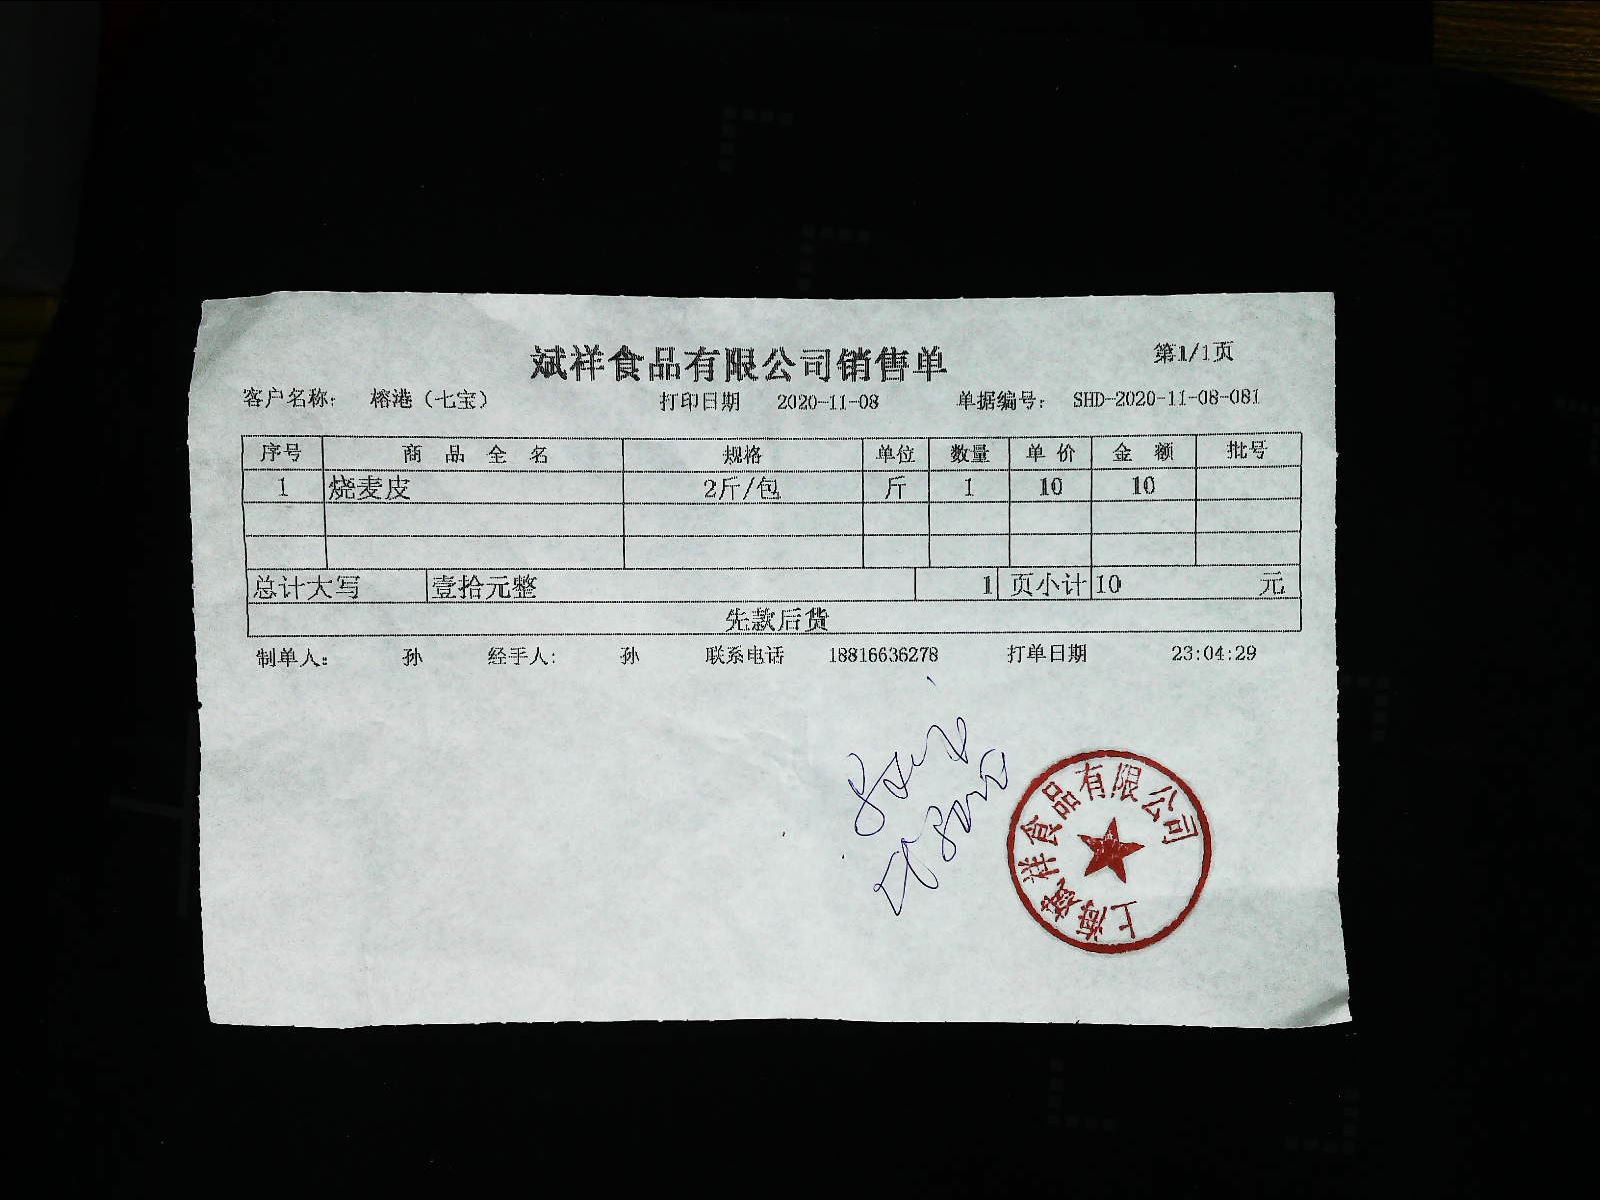 斌祥食品有限公司销售单
第1/1页
客户名称： 榕港（七宝） 打印日期 2020-11-08 单据编号： SHD-2020-11-08-081
序号 商 品 全 名 规格 单位 数量 单 价 金 额 批号
1 烧麦皮 2斤/包 斤 1 10 10
总计大写 壹拾元整 1 页小计 10 元
先款后货
制单人： 孙 经手人： 孙 联系电话 18816636278 打单日期 23:04:29
上海斌祥食品有限公司